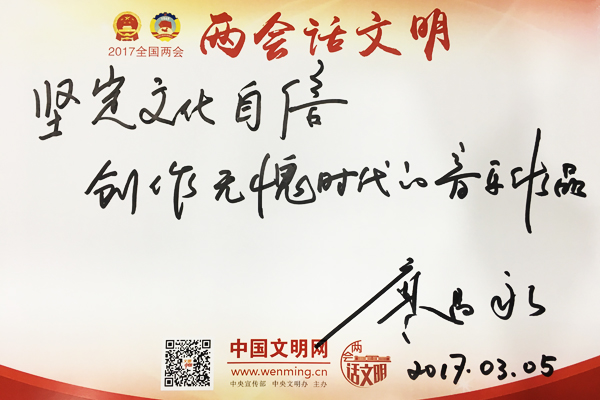 2017全国两会
两会话文明
坚定文化自信
创作无愧时代的音乐作品
廖昌永
2017.03.05
中国文明网
www.wenming.cn
中央宣传部 中央文明办 主办
两会
话文明